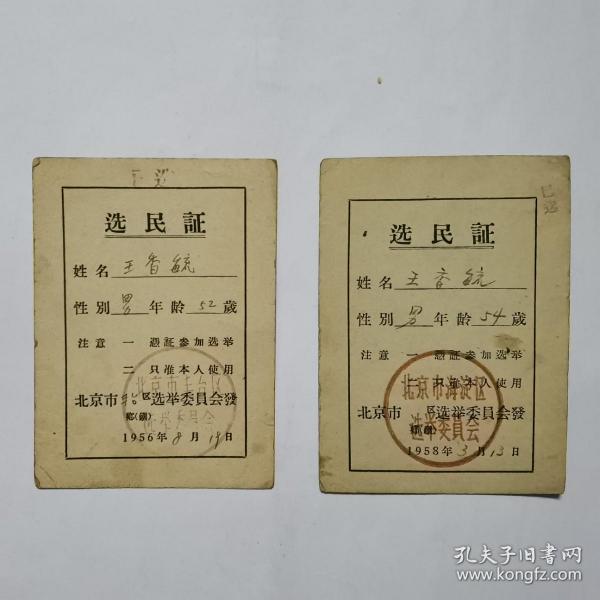 已 选
选民証
姓名 王香毓
性別 男 年龄 52 歲
注意 一 憑証参加选举
二 只准本人使用
北京市丰台区
选举委員会
北京市 丰台 区选举委員会發
鄉(鎮)
1956年8月19日
已
选
选民証
姓名 王香毓
性別 男 年龄 54 歲
注意 一 憑証参加选举
二 只准本人使用
北京市海淀区
选举委員会
北京市 区选举委員会發
鄉(鎮)
1958年3月13日
孔夫子旧书网
www.kongfz.com